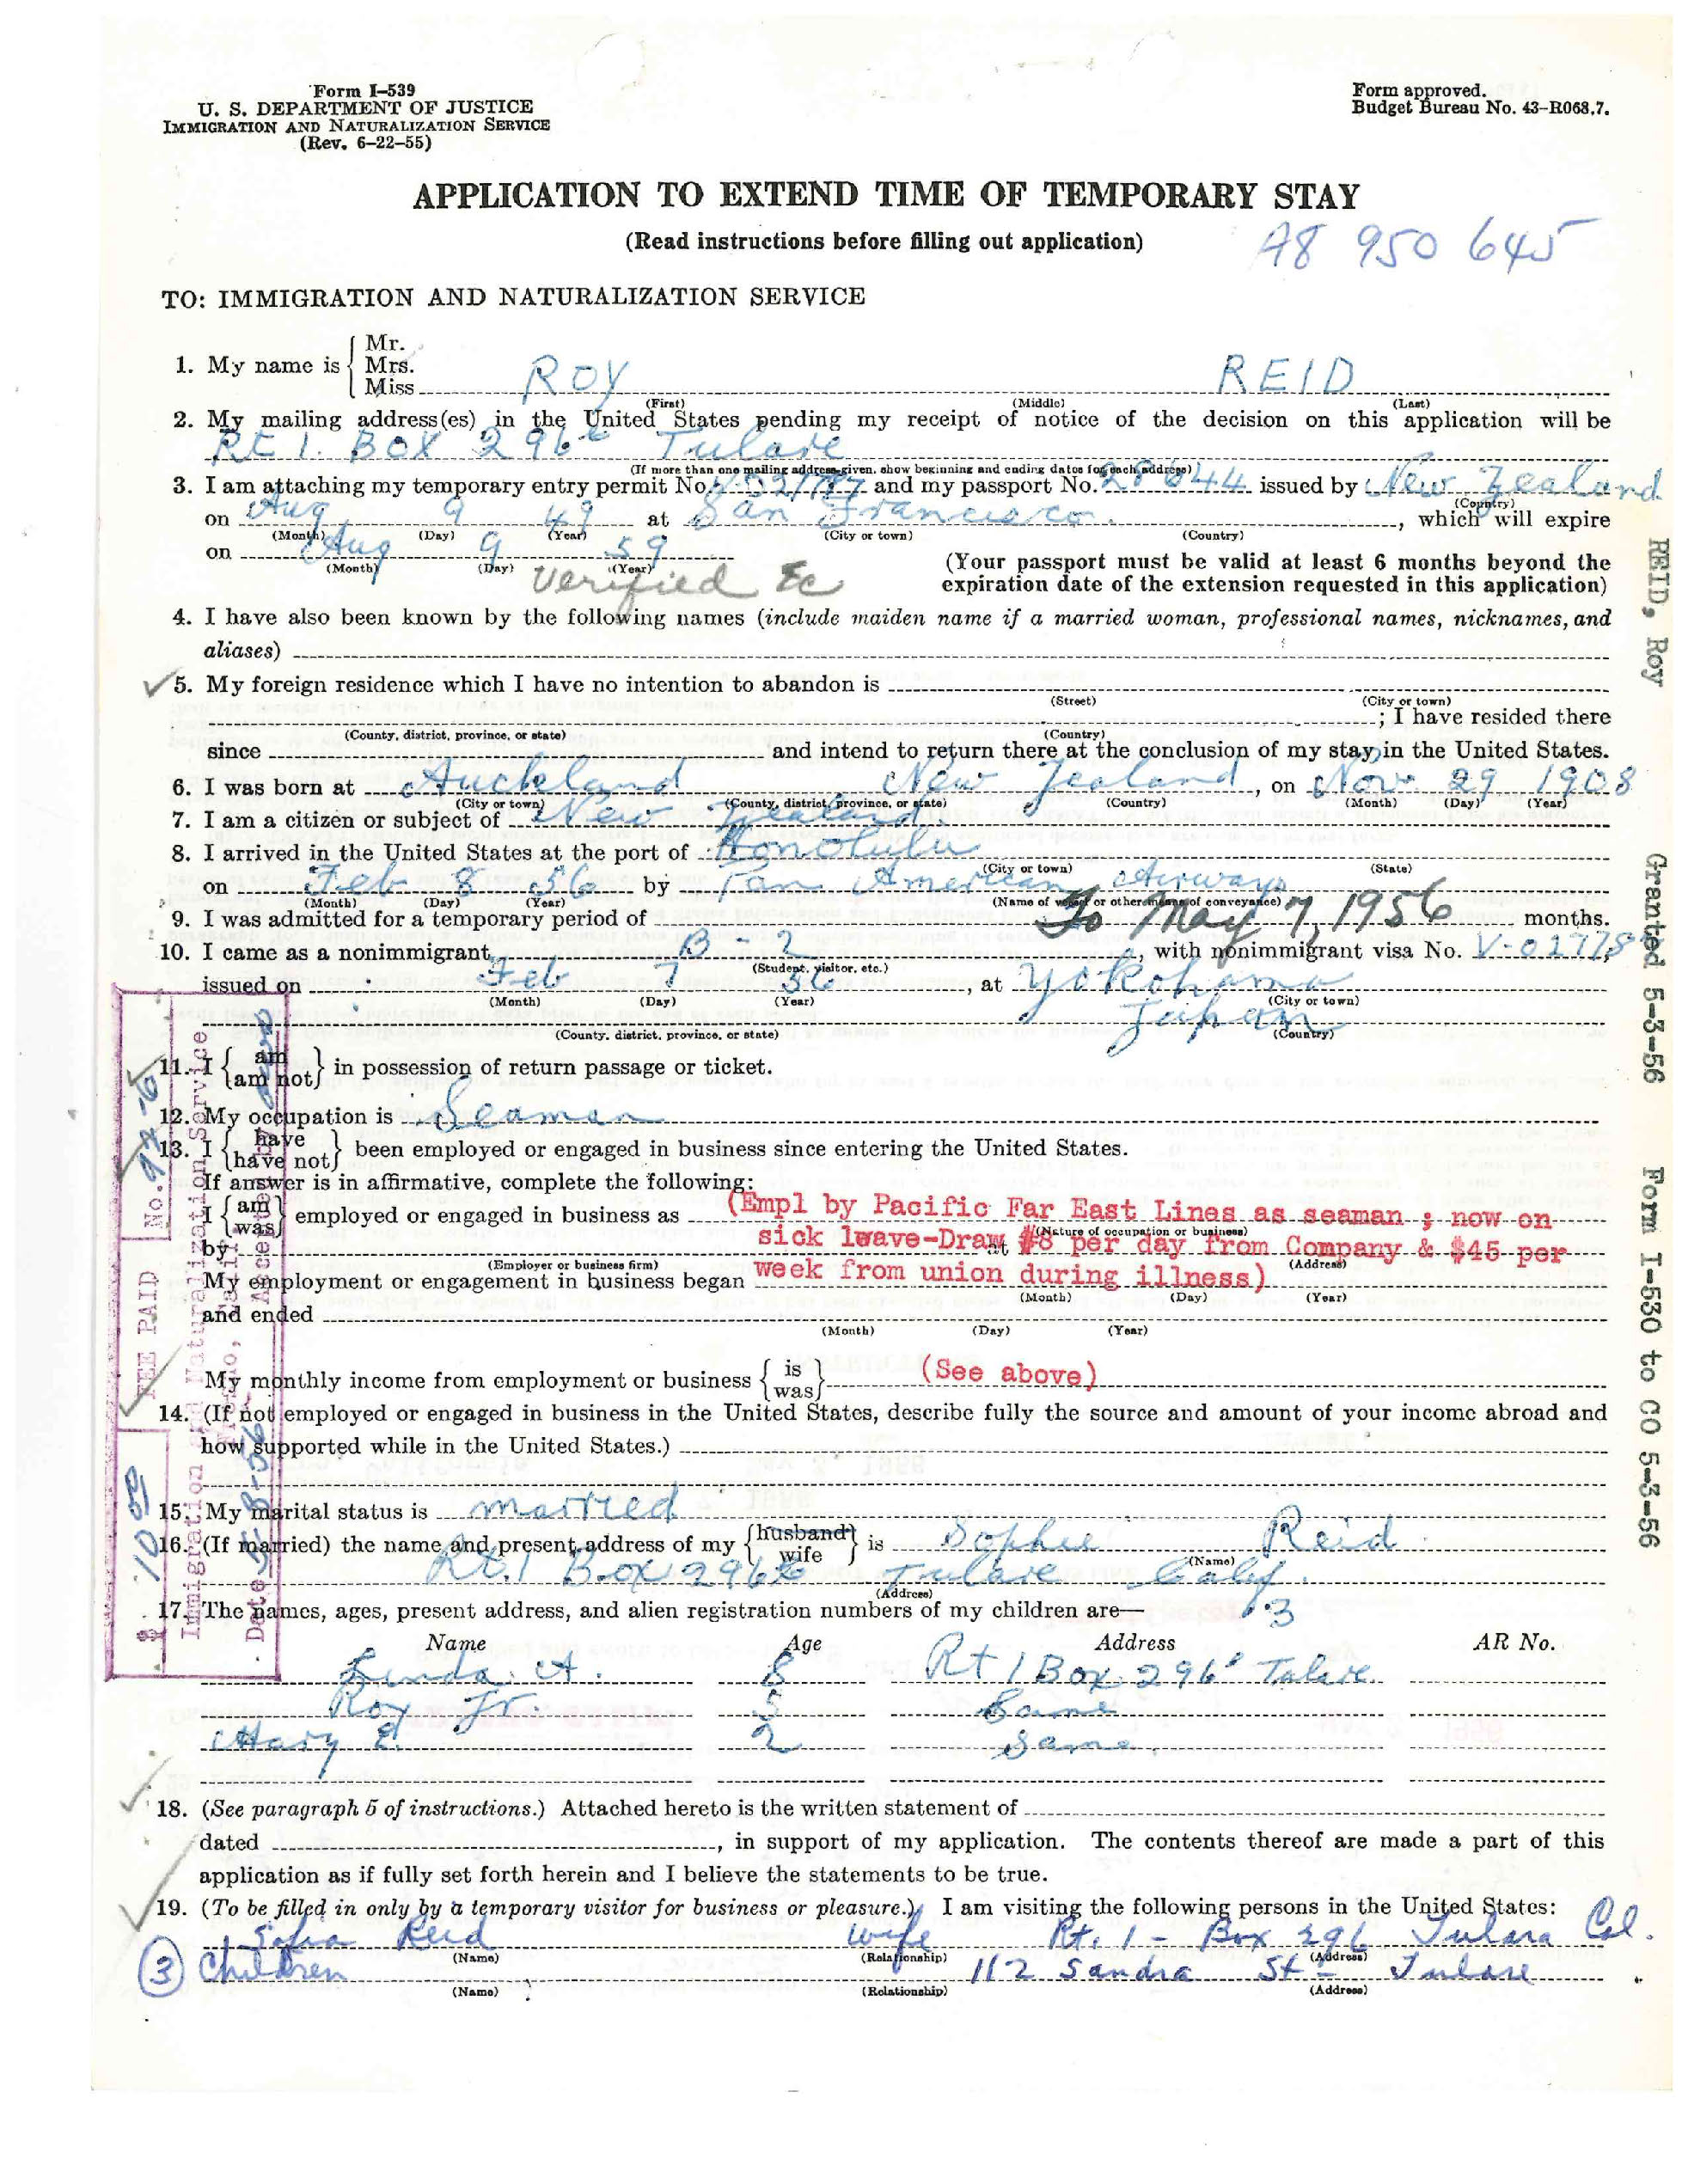 Form I-539
U. S. DEPARTMENT OF JUSTICE
IMMIGRATION AND NATURALIZATION SERVICE
(Rev. 6-22-55)
Form approved.
Budget Bureau No. 43-R068.7.
APPLICATION TO EXTEND TIME OF TEMPORARY STAY
(Read instructions before filling out application)
A8 950 645
TO: IMMIGRATION AND NATURALIZATION SERVICE
Mr.
1. My name is Mrs.
Miss ROY REID
(First) (Middle) (Last)
2. My mailing address(es) in the United States pending my receipt of notice of the decision on this application will be
Rt 1. BOX 296 Tulare
(If more than one mailing address given, show beginning and ending dates for each address)
3. I am attaching my temporary entry permit No. and my passport No. 28644 issued by New Zealand
(Country)
on Aug 9 49 at San Francisco, which will expire
(Month) (Day) (Year) (City or town) (Country)
on Aug 9 59
(Month) (Day) (Year)
Verified
(Your passport must be valid at least 6 months beyond the
expiration date of the extension requested in this application)
4. I have also been known by the following names (include maiden name if a married woman, professional names, nicknames, and
aliases)
5. My foreign residence which I have no intention to abandon is
(Street) (City or town)
; I have resided there
(County, district, province, or state) (Country)
since and intend to return there at the conclusion of my stay in the United States.
6. I was born at Auckland New Zealand, on Nov 29 1908
(City or town) (County, district, province, or state) (Country) (Month) (Day) (Year)
7. I am a citizen or subject of New Zealand.
8. I arrived in the United States at the port of Honolulu
(City or town) (State)
on Feb 8 56 by Pan American Airways
(Month) (Day) (Year) (Name of vessel or other means of conveyance)
9. I was admitted for a temporary period of To May 7, 1956 months.
10. I came as a nonimmigrant B-2, with nonimmigrant visa No.
(Student, visitor, etc.)
issued on Feb 7 56, at Yokohama
(Month) (Day) (Year) (City or town)
Japan
(County, district, province, or state) (Country)
11. I {am / am not} in possession of return passage or ticket.
12. My occupation is Seaman
13. I {have / have not} been employed or engaged in business since entering the United States.
If answer is in affirmative, complete the following:
I {am / was} employed or engaged in business as (Empl by Pacific Far East Lines as seaman ; now on
(Nature of occupation or business)
by sick leave-Draw at $8 per day from Company & $45 per
(Employer or business firm) (Address)
My employment or engagement in business began week from union during illness)
(Month) (Day) (Year)
and ended
(Month) (Day) (Year)
My monthly income from employment or business {is / was} (See above)
14. (If not employed or engaged in business in the United States, describe fully the source and amount of your income abroad and
how supported while in the United States.)
15. My marital status is married
16. (If married) the name and present address of my {husband / wife} is Sophie Reid
(Name)
Rt. 1 Box 296 Tulare Calif.
(Address)
17. The names, ages, present address, and alien registration numbers of my children are— 3
Name Age Address AR No.
Linda A. 8 Rt 1 Box 296 Tulare
Roy Jr. 5 Same
Mary E. 2 Same
18. (See paragraph 5 of instructions.) Attached hereto is the written statement of
dated , in support of my application. The contents thereof are made a part of this
application as if fully set forth herein and I believe the statements to be true.
19. (To be filled in only by a temporary visitor for business or pleasure.) I am visiting the following persons in the United States:
Sofia Reid wife Rt. 1 - Box 296 Tulare Cal.
(Name) (Relationship) (Address)
3 Children 112 Sandra St - Tulare
(Name) (Relationship) (Address)
FEE PAID No.
Immigration and Naturalization Service
Date
REID, Roy Granted 5-3-56 Form I-530 to CO 5-3-56